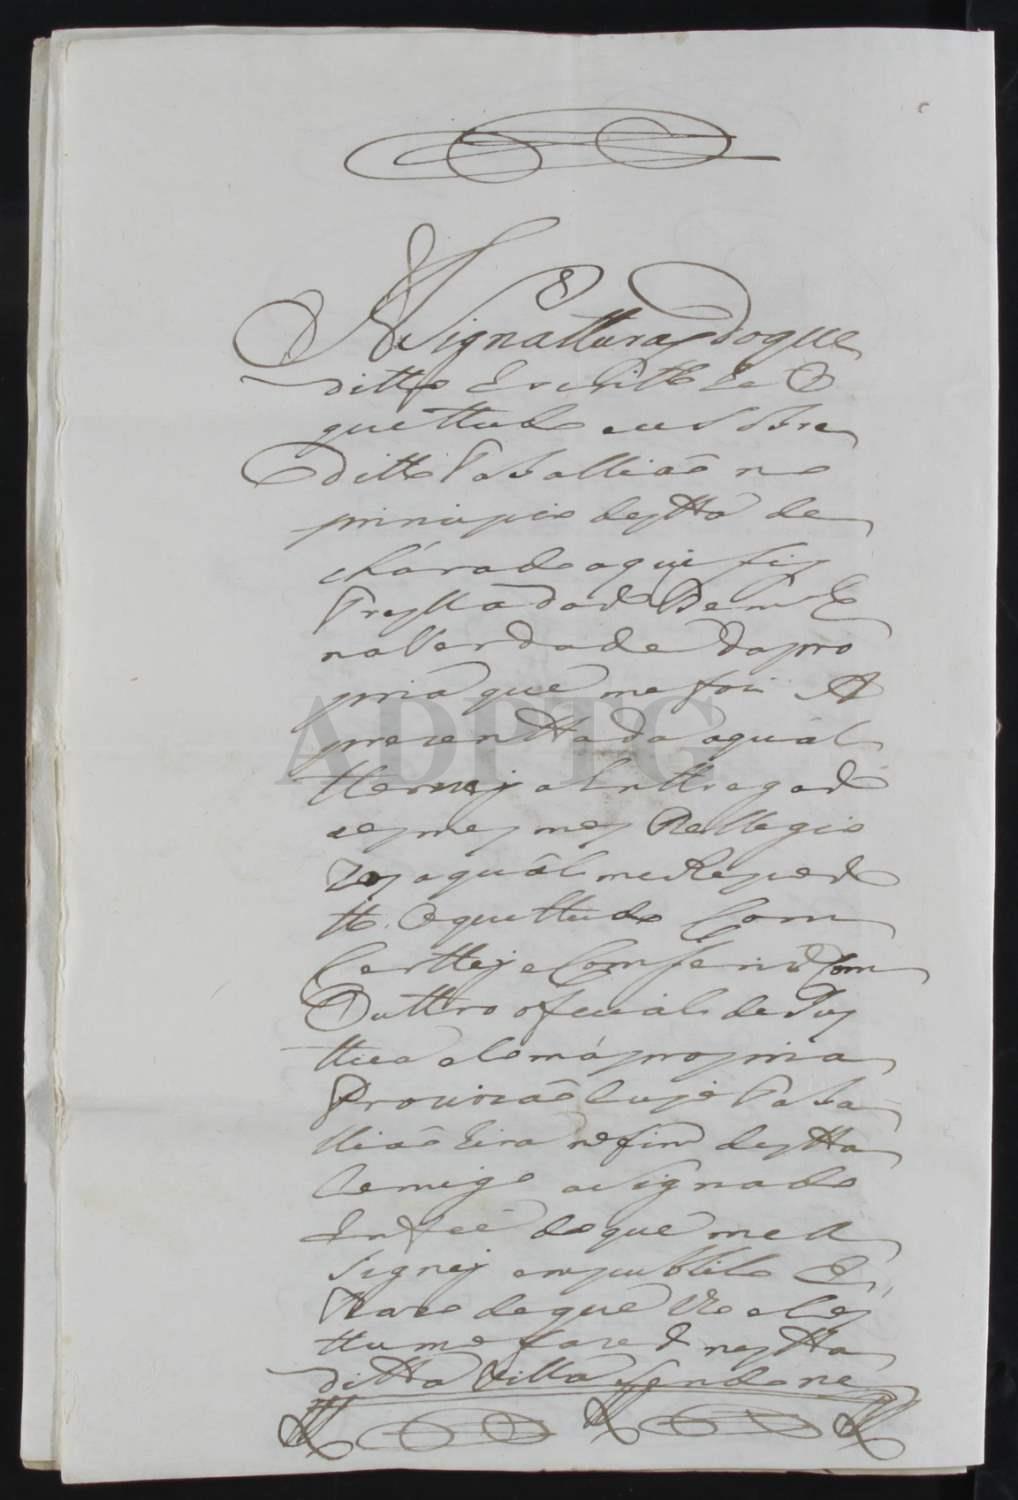 Asignatturas do que
ditto Escritto he O
que ttudo eu Sobre
ditto Taballiaõ no
principio destta de
clarado aqui fis
Tresladado Bem E
na Verdade da pro
pria que me foi A
prezentada a qual
ttorney a Enttregar
aos mesmos Rellegio
zos a qual me Reporto
tto. O que ttudo Com
Certtey e Comfery Com
Outtro oficial de Jus
ttica e Com a propria
Provizaõ Cujo Taba
lliaõ hira no fim destta
Comigo asignado
Em fee do que me A
Signey em pubblico E
Razo de que Vzo e Cos
ttumo fazer nestta
ditta Villa Sendo ne
ADPTG